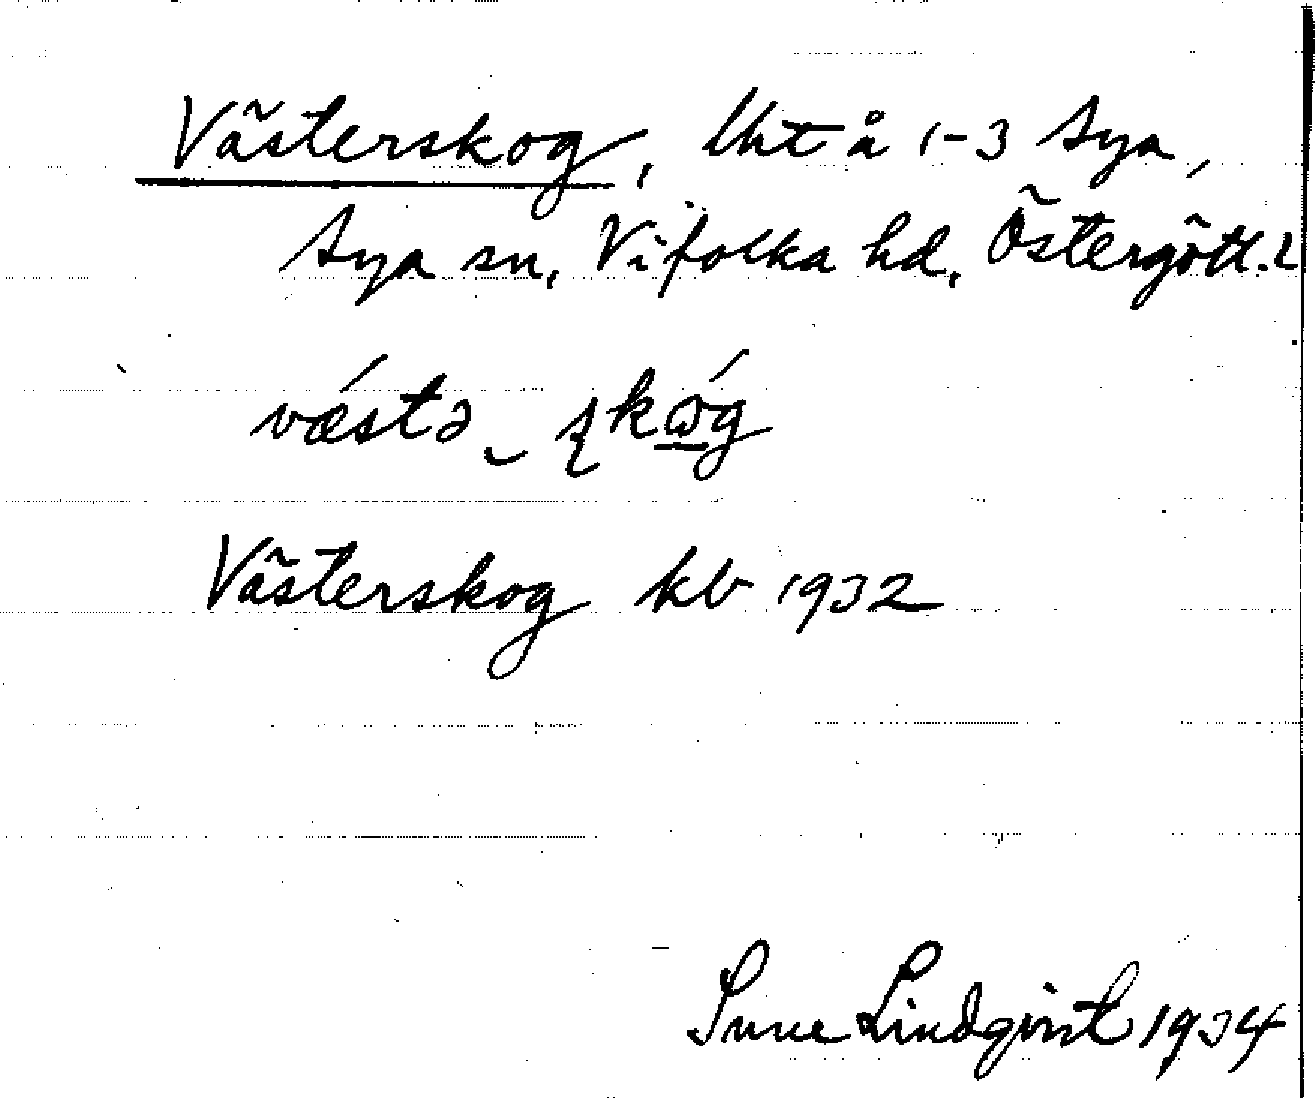 Västerskog, lht å 1-3 Sya,
Sya sn, Vifolka hd, Östergötl. l
vǽstə ‿ ʂkɷ́g
Västerskog kb 1932
Sune Lindqvist 1934